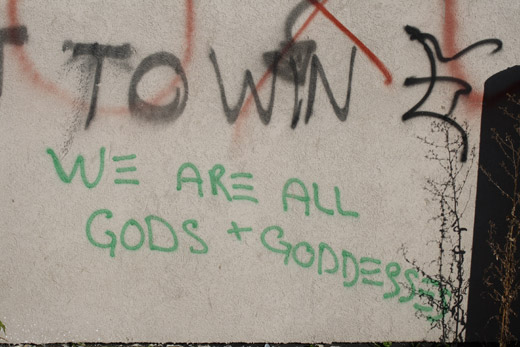 TO WIN
WE ARE ALL
GODS + GODDESSES